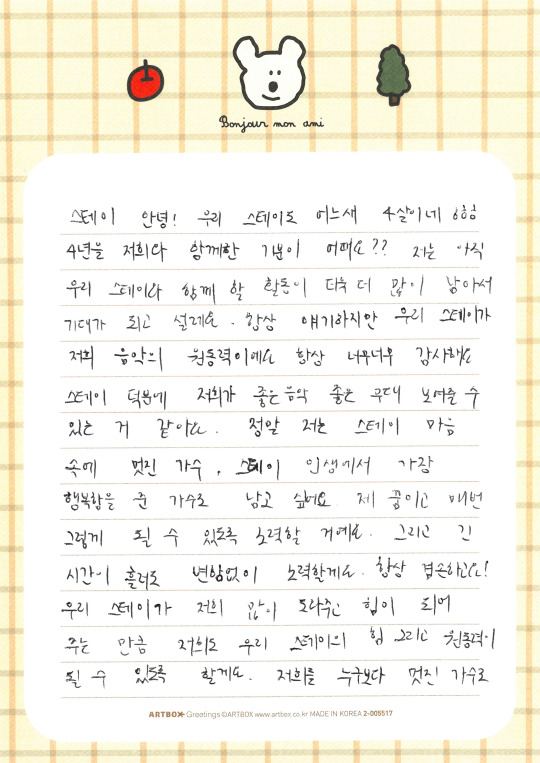 Bonjour mon ami
스테이 안녕! 우리 스테이도 어느새 4살이네 ㅎㅎㅎ
4년을 저희와 함께한 기분이 어때요?? 저는 아직
우리 스테이와 함께 할 활동이 더욱 더 많이 남아서
기대가 되고 설레요. 항상 얘기하지만 우리 스테이가
저희 음악의 원동력이에요 항상 너무너무 감사해요
스테이 덕분에 저희가 좋은 음악 좋은 무대 보여줄 수
있는 거 같아요. 정말 저는 스테이 마음
속에 멋진 가수, 스테이 인생에서 가장
행복함을 준 가수로 남고 싶어요. 제 꿈이고 매번
그렇게 될 수 있도록 노력할 거예요. 그리고 긴
시간이 흘러도 변함없이 노력할게요. 항상 겸손하고요!
우리 스테이가 저희 많이 도와주고 힘이 되어
주는 만큼 저희도 우리 스테이의 힘 그리고 원동력이
될 수 있도록 할게요. 저희를 누구보다 멋진 가수로
ARTBOX Greetings ©ARTBOX www.artbox.co.kr MADE IN KOREA 2-005517